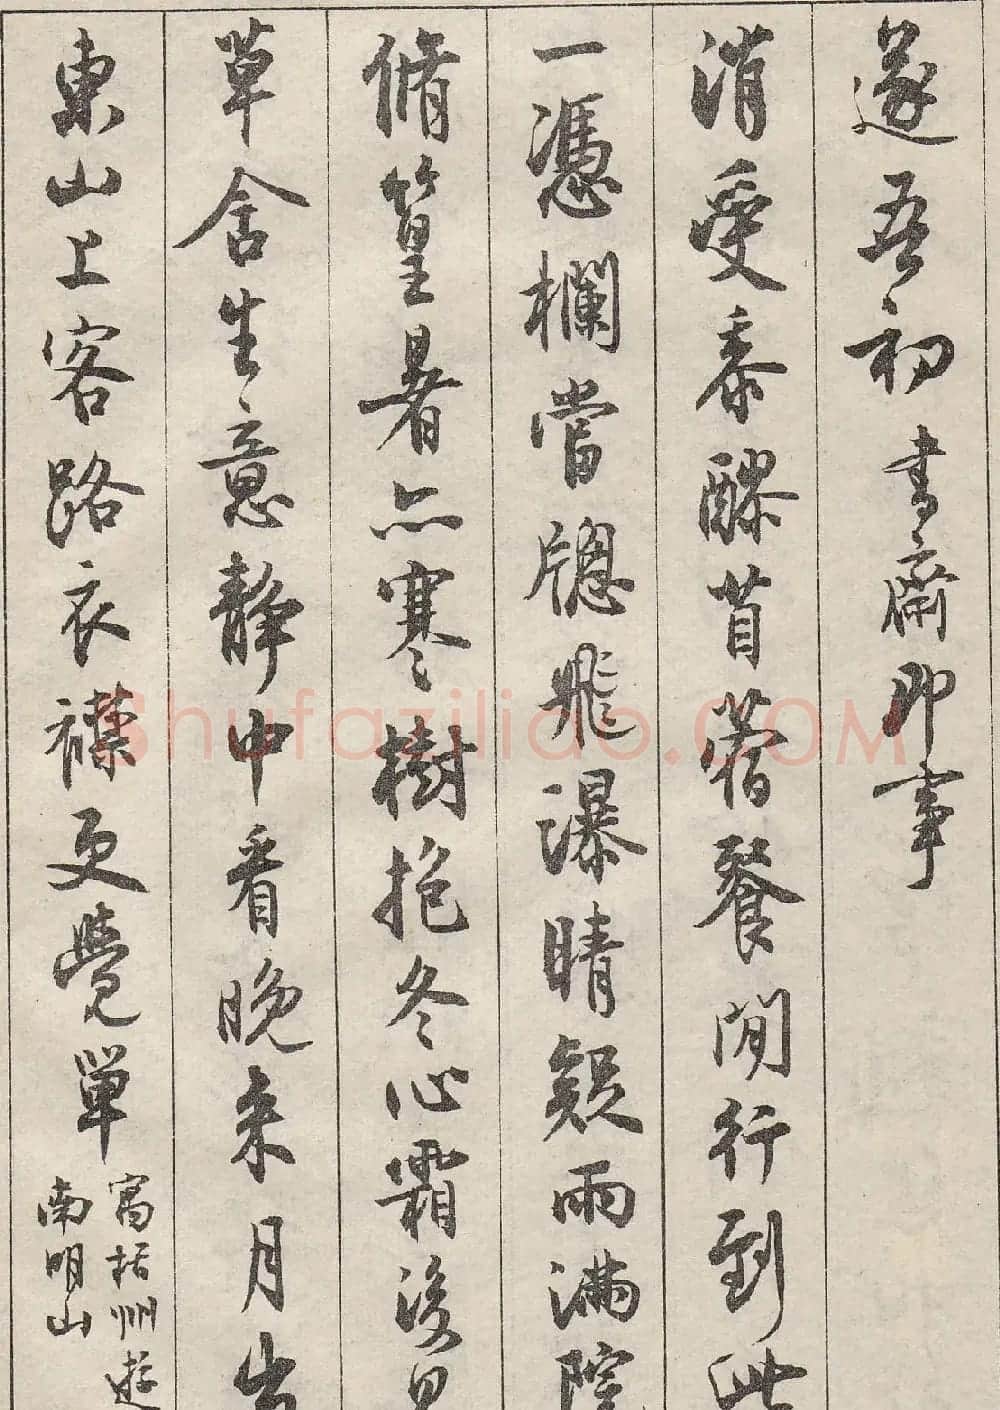 遂吾初 書齋即事
消受黍醪苜蓿餐閒行到此
一憑欄當牕飛瀑晴疑雨滿院
脩篁暑亦寒樹抱冬心霜後見
草舍生意靜中看晚来月出
東山上客路衣襟更覺單
寓括州遊
南明山
Shufaziliao.COM